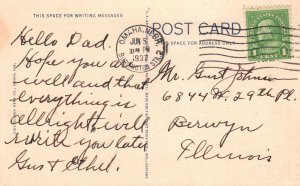 THIS SPACE FOR WRITING MESSAGES
Hello Dad.
Hope you are
well and that
everything is
allright, will
write you later
Gus & Ethel.
POST CARD
THIS SPACE FOR ADDRESS ONLY
OMAHA, NEBR.
JUN 8
PM
1937
1 CENT 1
Mr. Gust Johnson
6844 W. 29th Pl.
Berwyn
Illinois